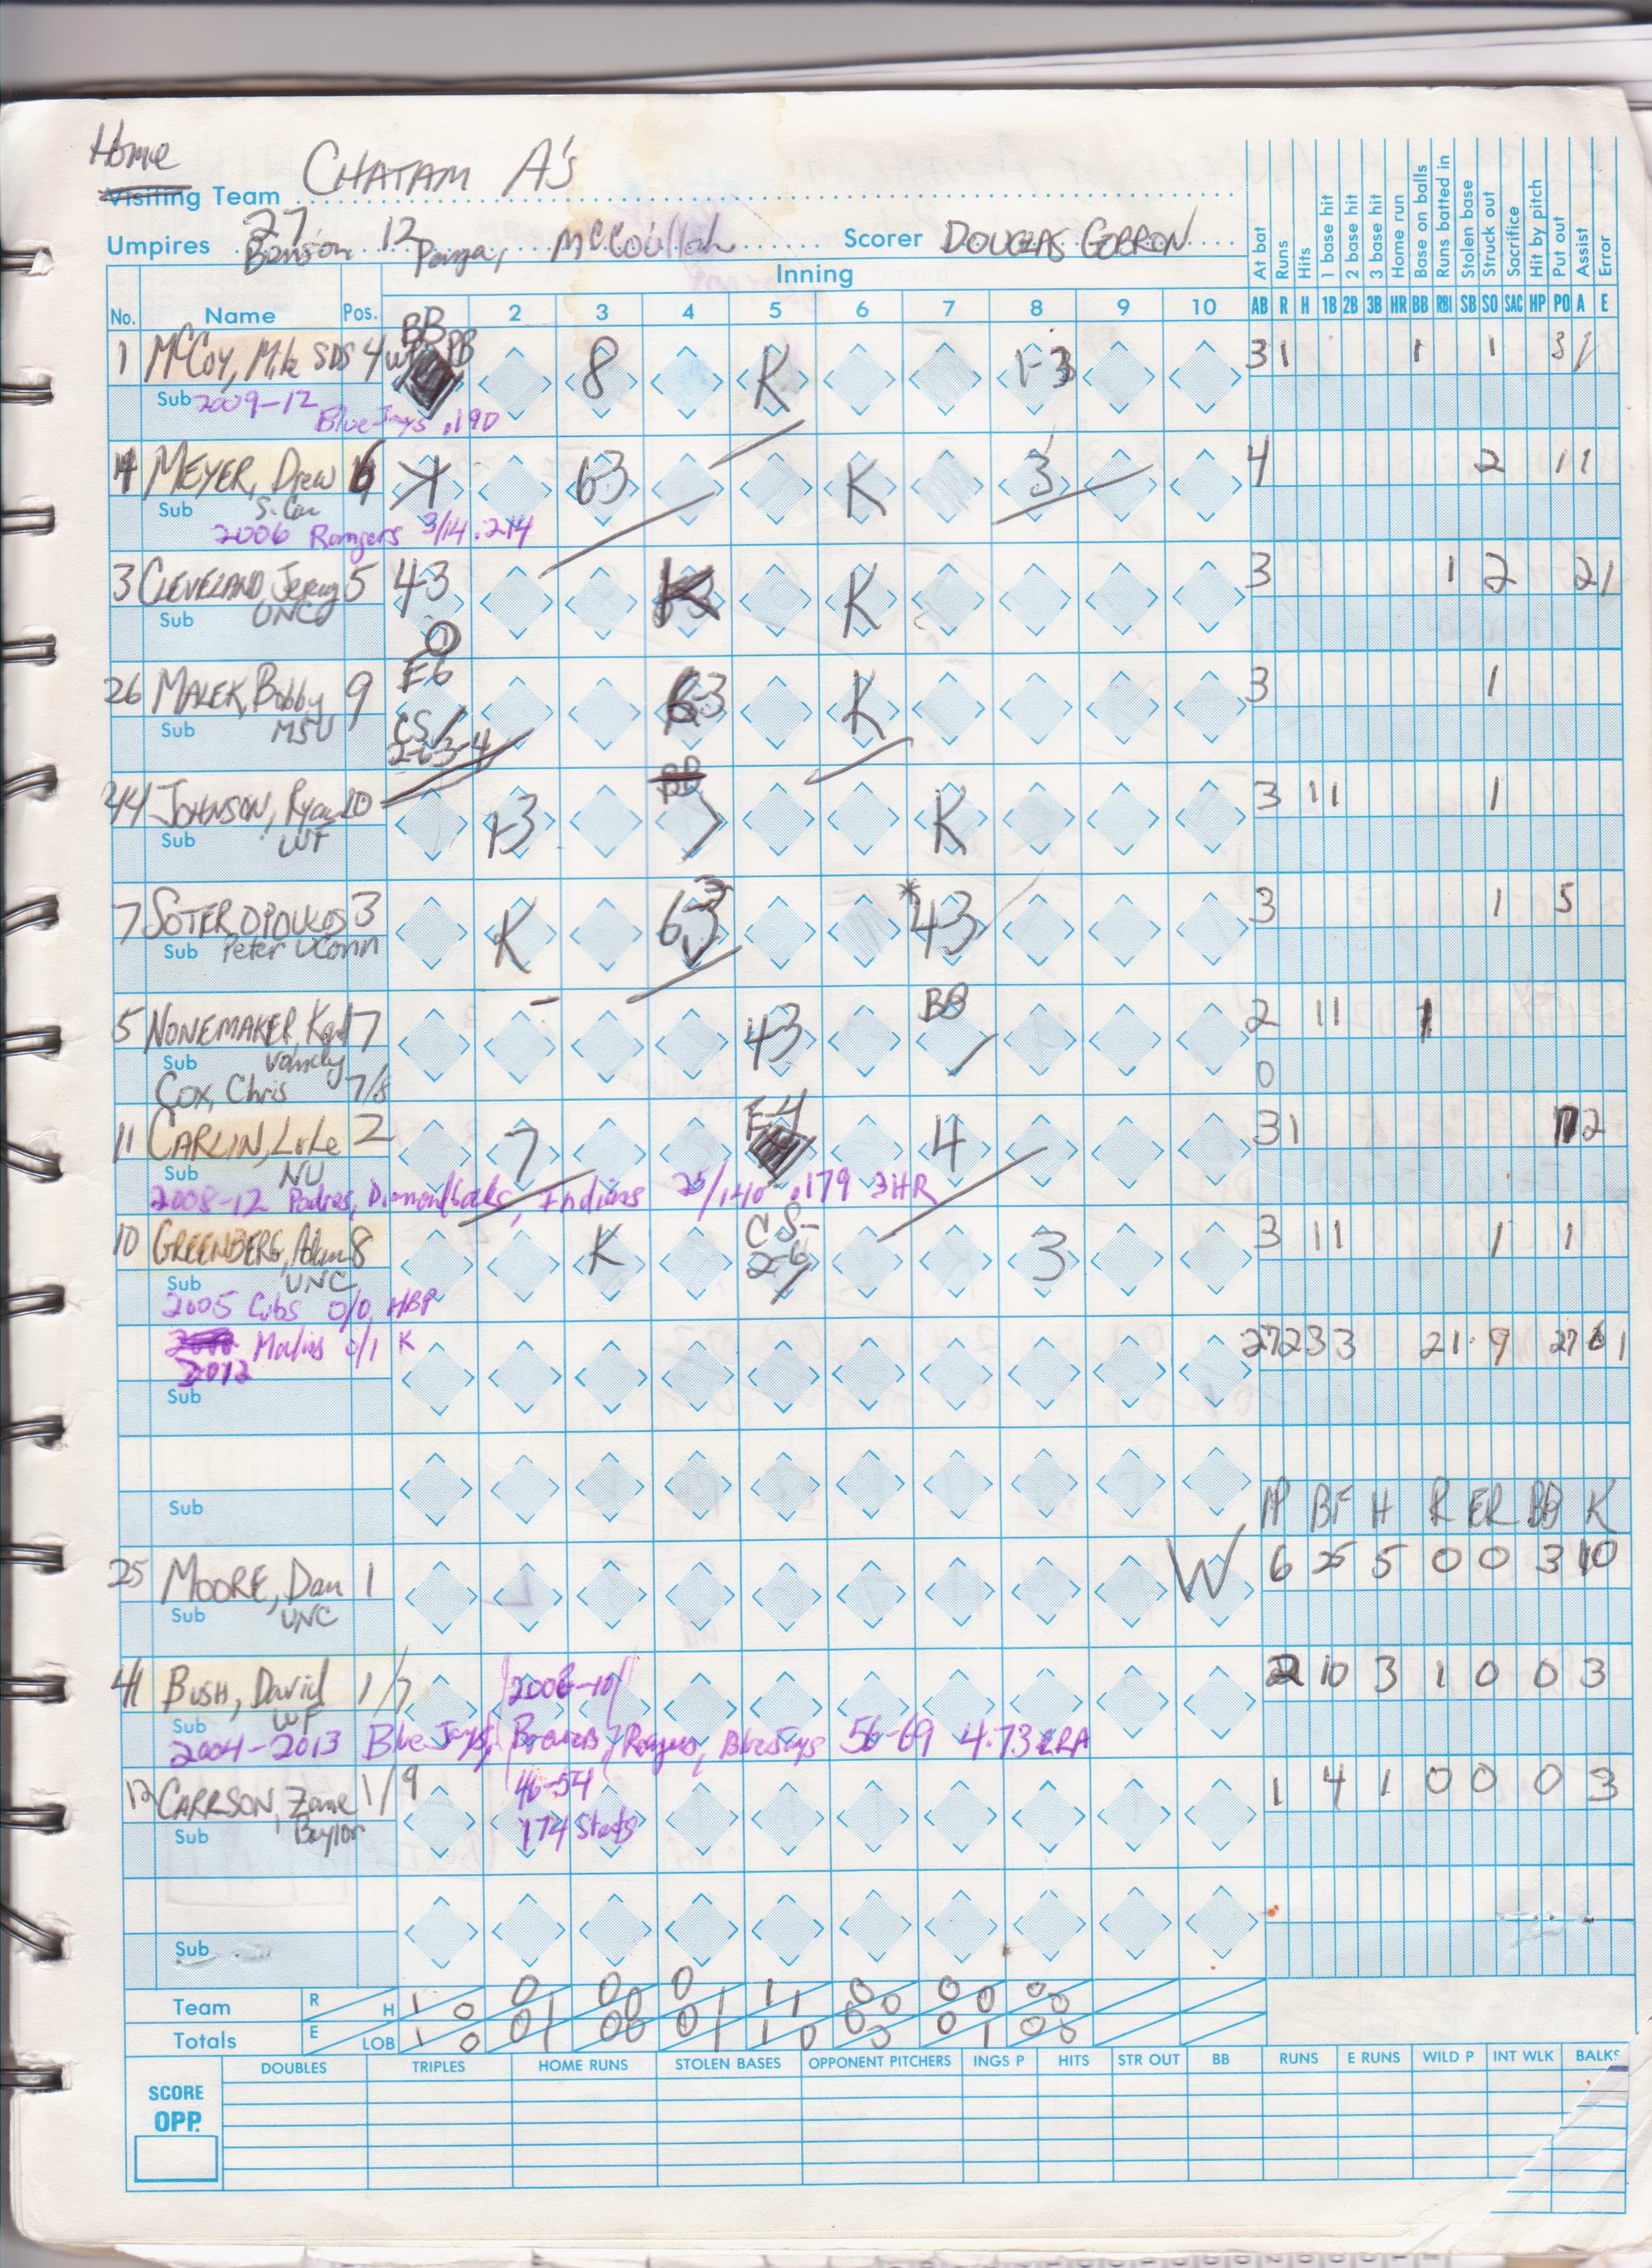 Home
Visiting Team CHATAM A's
27 12
Umpires Benson Scorer DOUGLAS GOBRON
Inning
At bat Runs Hits 1 base hit 2 base hit 3 base hit Home run Base on balls Runs batted in Stolen base Struck out Sacrifice Hit by pitch Put out Assist Error
No. Name Pos. 2 3 4 5 6 7 8 9 10 AB R H 1B 2B 3B HR BB RBI SB SO SAC HP PO A E
BB
1 McCOY, Mike SDS 4 WP PB 8 K 1-3 3 1 1 1 3 1
Sub 2009-12
Blue Jays .190
MEYER, Drew 6 K 63 K 3 4 2 1 1
Sub S. Car
2006 Rangers 3/14 .214
3 CLEVELAND, Jeremy 5 43 K K 3 1 2 2 1
Sub UNC
26 MALEK, Bobby 9 E6 63 K 3 1
Sub MSU CS
2-6-3-4
BB
44 JOHNSON, Ryan 10 1-3 K 3 1 1 1
Sub WF
7 SOTEROPOULOS 3 K 63 *43 3 1 5
Sub Peter UConn
5 NONEMAKER, Karl 7 43 BB 2 1 1 1
Sub Vandy 0
COX, Chris 7/8
E-4
11 CARLIN, Luke 2 7 4 3 1 2
Sub NU
2008-12 Padres, Diamondbacks, Indians 25/140 .179 3HR
10 GREENBERG, Adam 8 K CS 2-6 3 3 1 1 1 1
Sub UNC
2005 Cubs 0/0, HBP
Marlins 0/1 K 27 2 3 3 2 1 9 27 6 1
2012
Sub
Sub
IP BF H R ER BB K
25 MOORE, Dan 1 W 6 25 5 0 0 3 10
Sub UNC
41 BUSH, David 1/7 2006-10 2 10 3 1 0 0 3
Sub WF
2004-2013 Blue Jays, Brewers, Rangers, Blue Jays 56-69 4.73 ERA
12 CARRSON, Zane 1/9 46-54 1 4 1 0 0 0 3
Sub Baylor 174 Starts
Sub
Team R H 1 0 0 0 0 0 0 1 1 1 0 0 0 0 0 0
Totals E LOB 1 0 0 1 0 0 0 1 1 0 0 0 0 1 0 0
DOUBLES TRIPLES HOME RUNS STOLEN BASES OPPONENT PITCHERS INGS P HITS STR OUT BB RUNS E RUNS WILD P INT WLK BALKS
SCORE
OPP.